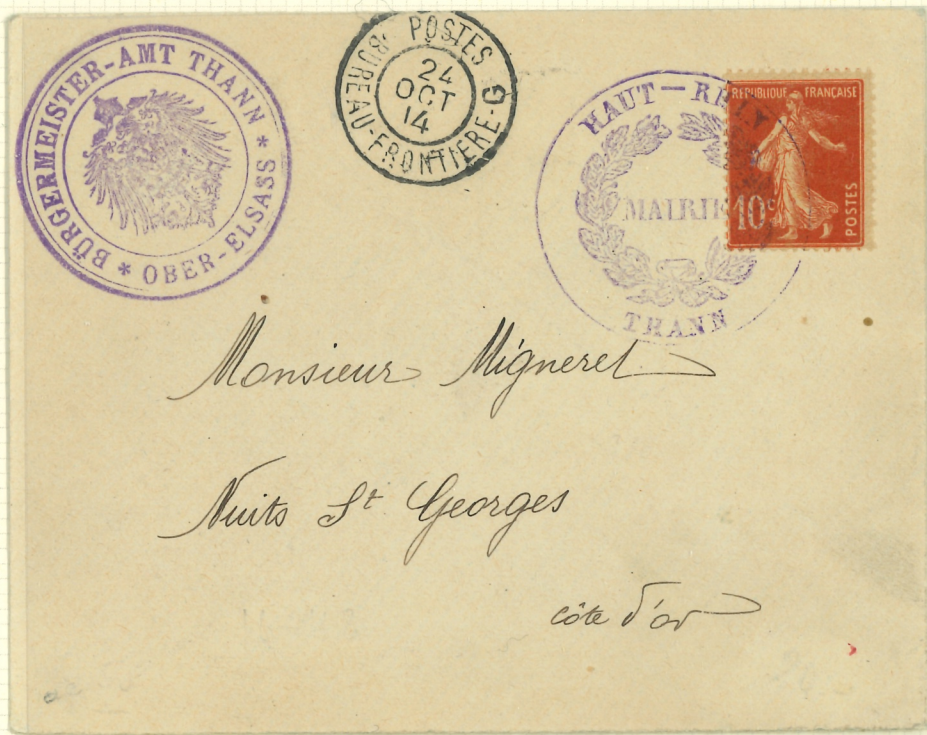 BÜRGERMEISTER-AMT THANN
* OBER-ELSASS *
POSTES
24
OCT
14
BUREAU-FRONTIERE-G
HAUT-RH
MAIRIE
THANN
REPUBLIQUE FRANÇAISE
10c
POSTES
Monsieur Migneret
Nuits St Georges
côte d'or